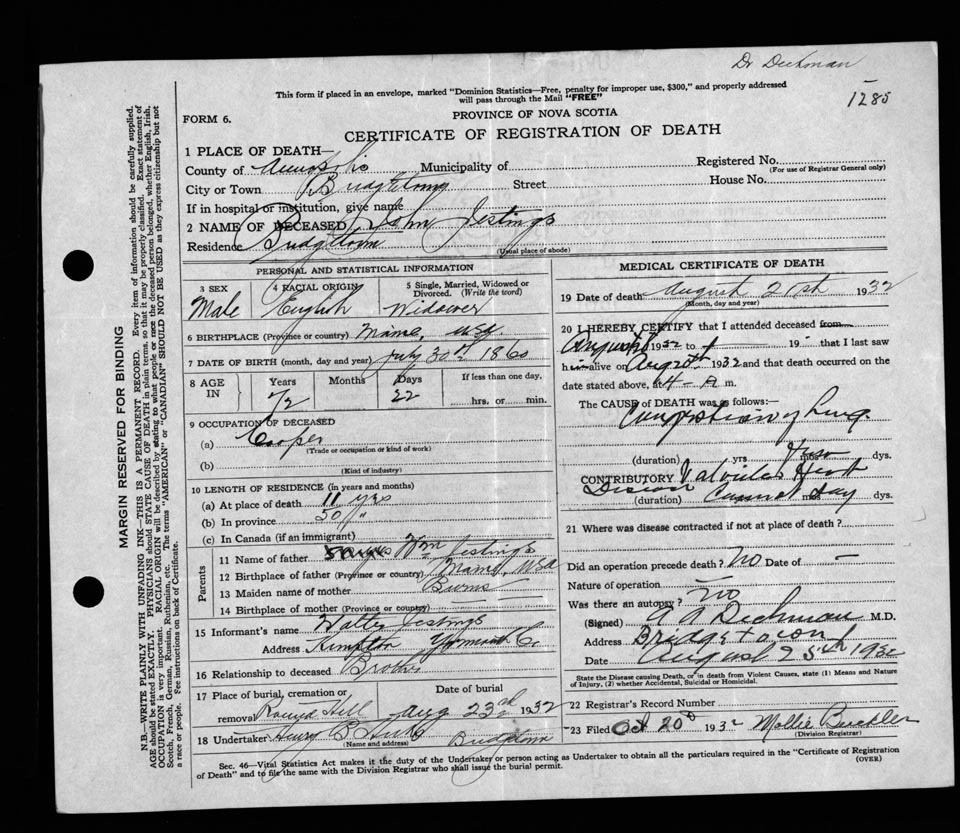 Dr Deckman
1285
This form if placed in an envelope, marked "Dominion Statistics—Free, penalty for improper use, $300," and properly addressed
will pass through the Mail "FREE"
FORM 6.
PROVINCE OF NOVA SCOTIA
CERTIFICATE OF REGISTRATION OF DEATH
1 PLACE OF DEATH—
County of Annapolis Municipality of
Registered No.
(For use of Registrar General only)
City or Town Bridgetown Street House No.
If in hospital or institution, give name
2 NAME OF DECEASED John Jestings
Residence Bridgetown
(Usual place of abode)
PERSONAL AND STATISTICAL INFORMATION
3 SEX
Male
4 RACIAL ORIGIN
English
5 Single, Married, Widowed or
Divorced. (Write the word)
Widower
6 BIRTHPLACE (Province or country) Maine, USA
7 DATE OF BIRTH (month, day and year) July 30th 1860
8 AGE
IN
Years
72
Months
Days
22
If less than one day,
hrs. or min.
9 OCCUPATION OF DECEASED
(a) Cooper
(Trade or occupation or kind of work)
(b)
(Kind of industry)
10 LENGTH OF RESIDENCE (in years and months)
(a) At place of death 11 yrs
(b) In province 50 "
(c) In Canada (if an immigrant)
Parents
11 Name of father Wm Jestings
12 Birthplace of father (Province or country) Maine, USA
13 Maiden name of mother Burns
14 Birthplace of mother (Province or country)
15 Informant's name Walter Jestings
Address Kempton Yarmouth Co.
16 Relationship to deceased Brother
17 Place of burial, cremation or
removal Round Hill
Date of burial
Aug 23rd 1932
18 Undertaker Henry B Hicks Bridgetown
(Name and address)
MEDICAL CERTIFICATE OF DEATH
19 Date of death August 21st 1932
(Month, day and year)
20 I HEREBY CERTIFY that I attended deceased from
August 1932 to 19 that I last saw
him alive on August 1932 and that death occurred on the
date stated above, at 4 - A m.
The CAUSE of DEATH was as follows:—
Congestion of Lung
(duration) yrs mos dys.
CONTRIBUTORY Valvular Heart
Disease
(duration) Cannot say mos dys.
21 Where was disease contracted if not at place of death?
Did an operation precede death? No Date of —
Nature of operation —
Was there an autopsy? No
(Signed) A A Deckman M.D.
Address Bridgetown
Date August 25th 1932
State the Disease causing Death, or in death from Violent Causes, state (1) Means and Nature
of Injury, (2) whether Accidental, Suicidal or Homicidal.
22 Registrar's Record Number
23 Filed Oct 20th 1932 Mollie Buckler
(Division Registrar)
Sec. 46—Vital Statistics Act makes it the duty of the Undertaker or person acting as Undertaker to obtain all the particulars required in the "Certificate of Registration
of Death" and to file the same with the Division Registrar who shall issue the burial permit.
(OVER)
MARGIN RESERVED FOR BINDING
N.B.—WRITE PLAINLY WITH UNFADING INK—THIS IS A PERMANENT RECORD. Every item of information should be carefully supplied.
AGE should be stated EXACTLY. PHYSICIANS should STATE CAUSE OF DEATH in plain terms, so that it may be properly classified. Exact statement of
OCCUPATION is very important. RACIAL ORIGIN will be described by stating to what people or race the deceased person belonged, whether English, Irish,
Scotch, French, German, Russian, Ruthenian, etc. The terms "AMERICAN" or "CANADIAN" SHOULD NOT BE USED as they express citizenship but not
a race or people. See instructions on back of Certificate.